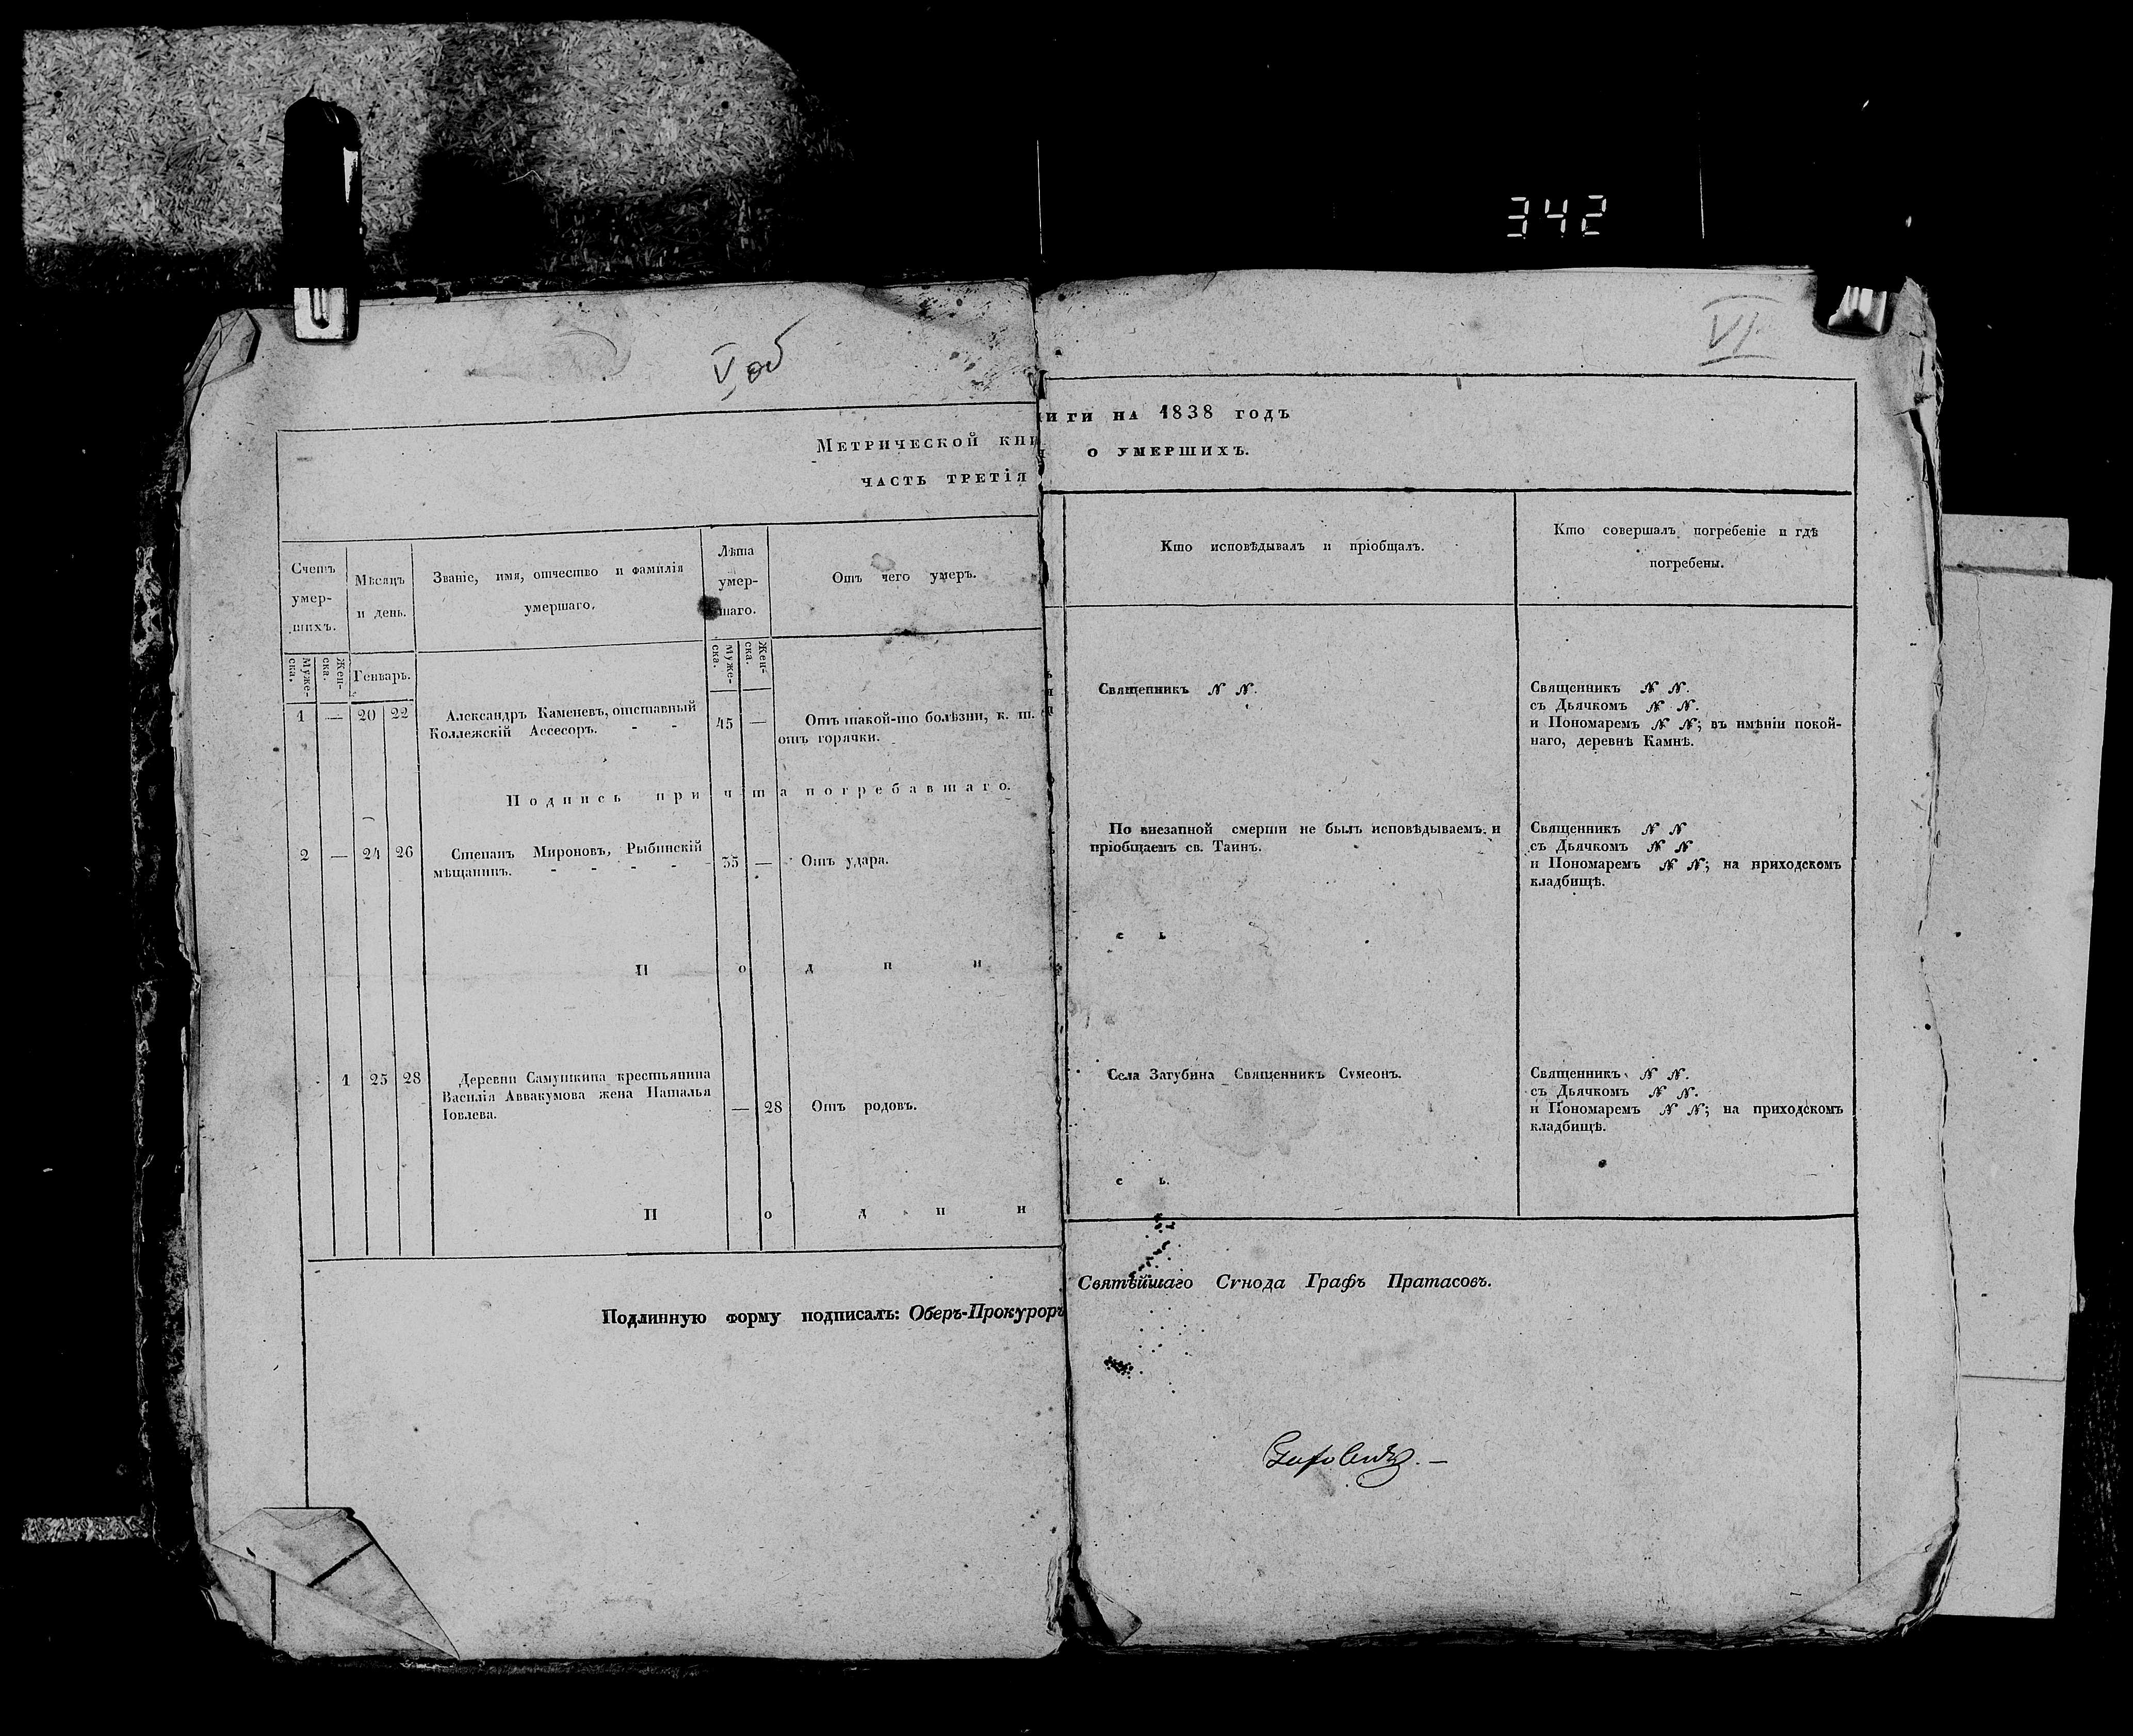 342
V об
VI
Метрической книги на 1838 годъ
часть третія о умершихъ.
Счетъ умер-шихъ.
Мѣсяцъ и день.
Званіе, имя, отчество и фамилія умершаго.
Лѣта умер-шаго.
Отъ чего умеръ.
Кто исповѣдывалъ и пріобщалъ.
Кто совершалъ погребеніе и гдѣ
погребены.
Муже-ска.
Жен-ска.
Генварь.
Муже-ска.
Жен-ска.
1 — 20 22
Александръ Каменевъ, отставный
Коллежскій Ассесоръ. - -
45 —
Отъ такой-то болѣзни, к. т.
отъ горячки.
Священникъ N N.
Священникъ N N.
съ Дьячкомъ N N.
и Пономаремъ N N; въ имѣніи покой-
наго, деревнѣ Камнѣ.
Подпись причта погребавшаго.
2 — 24 26
Степанъ Мироновъ, Рыбинскій
мѣщанинъ. - - - -
35 —
Отъ удара.
По внезапной смерти не былъ исповѣдываемъ и
пріобщаемъ св. Таинъ.
Священникъ N N
съ Дьячкомъ N N
и Пономаремъ N N; на приходскомъ
кладбищѣ.
П о д п и с ь
1 25 28
Деревни Самушкина крестьянина
Василія Аввакумова жена Наталья
Іовлева.
— 28
Отъ родовъ.
Села Загубина Священникъ Сѵмеонъ.
Священникъ N N.
съ Дьячкомъ N N.
и Пономаремъ N N; на приходскомъ
кладбищѣ.
П о д п и с ь.
Подлинную форму подписалъ: Оберъ-Прокуроръ Святѣйшаго Сѵнода Графъ Пратасовъ.